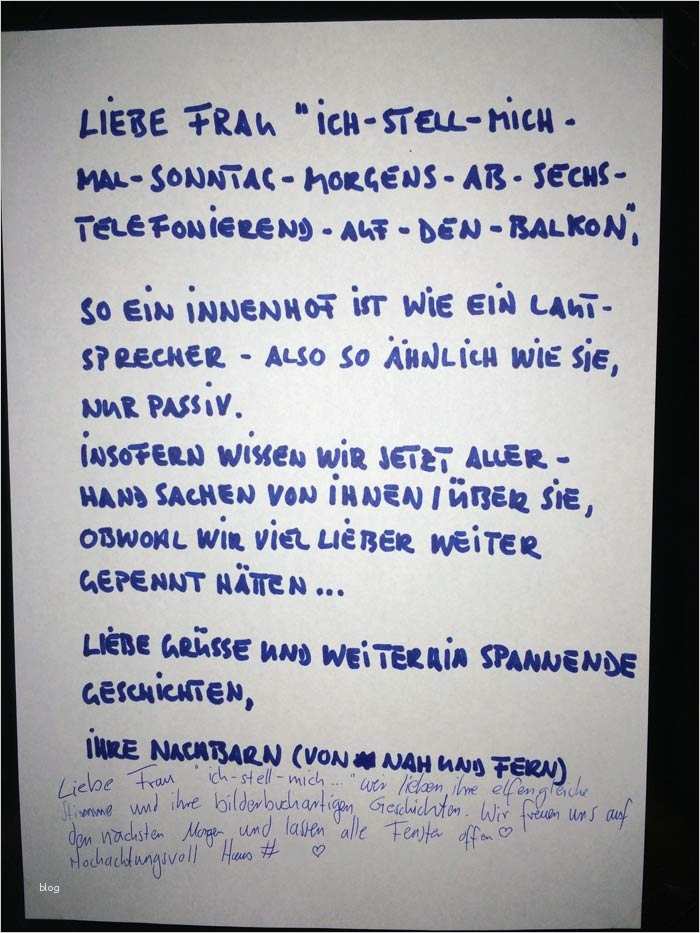 LIEBE FRAU "ICH-STELL-MICH-
MAL-SONNTAG-MORGENS-AB-SECHS-
TELEFONIEREND-AUF-DEN-BALKON",
SO EIN INNENHOF IST WIE EIN LAUT-
SPRECHER - ALSO SO ÄHNLICH WIE SIE,
NUR PASSIV.
INSOFERN WISSEN WIR JETZT ALLER-
HAND SACHEN VON IHNEN / ÜBER SIE,
OBWOHL WIR VIEL LIEBER WEITER
GEPENNT HÄTTEN...
LIEBE GRÜSSE UND WEITERHIN SPANNENDE
GESCHICHTEN,
IHRE NACHBARN (VON NAH UND FERN)
Liebe Frau "ich-stell-mich..." wir lieben ihre elfengleiche
Stimme und ihre bilderbuchartigen Geschichten. Wir freuen uns auf
den nächsten Morgen und lassen alle Fenster offen ♡
Hochachtungsvoll Haus # ♡
blog